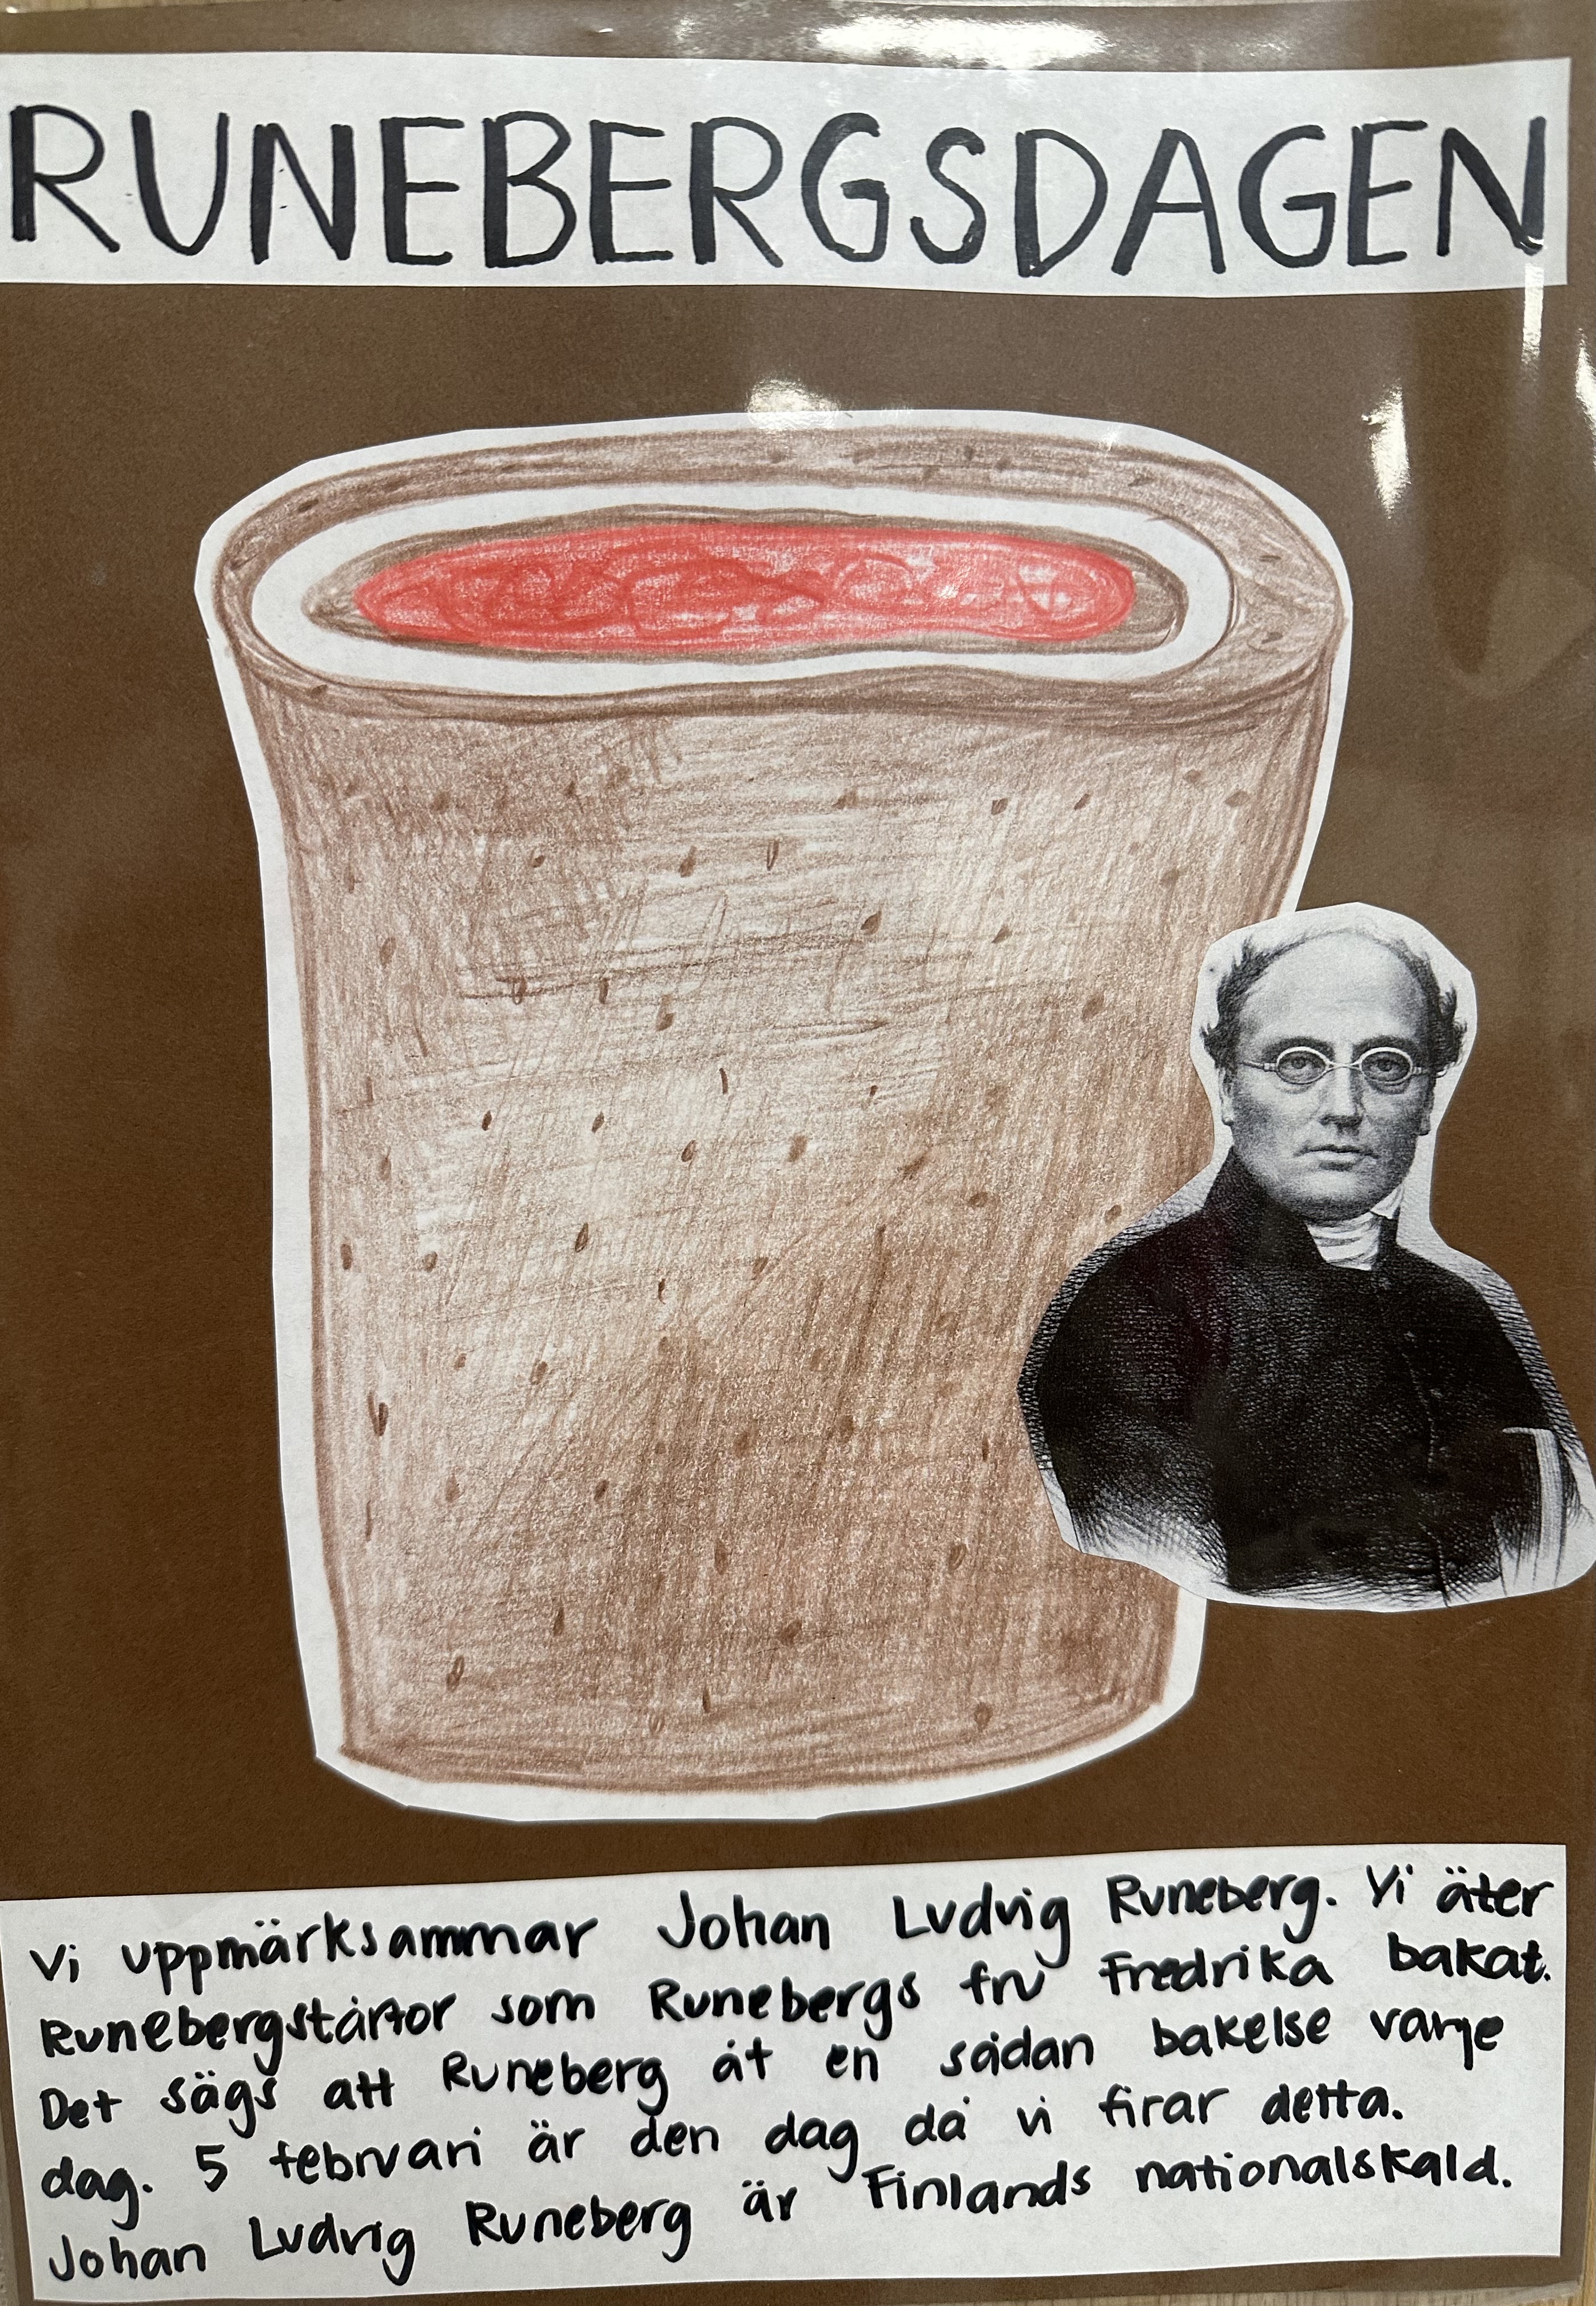 RUNEBERGSDAGEN
Vi uppmärksammar Johan Ludvig Runeberg. Vi äter
Runebergstårtor som Runebergs fru Fredrika bakat.
Det sägs att Runeberg åt en sådan bakelse varje
dag. 5 februari är den dag då vi firar detta.
Johan Ludvig Runeberg är Finlands nationalskald.